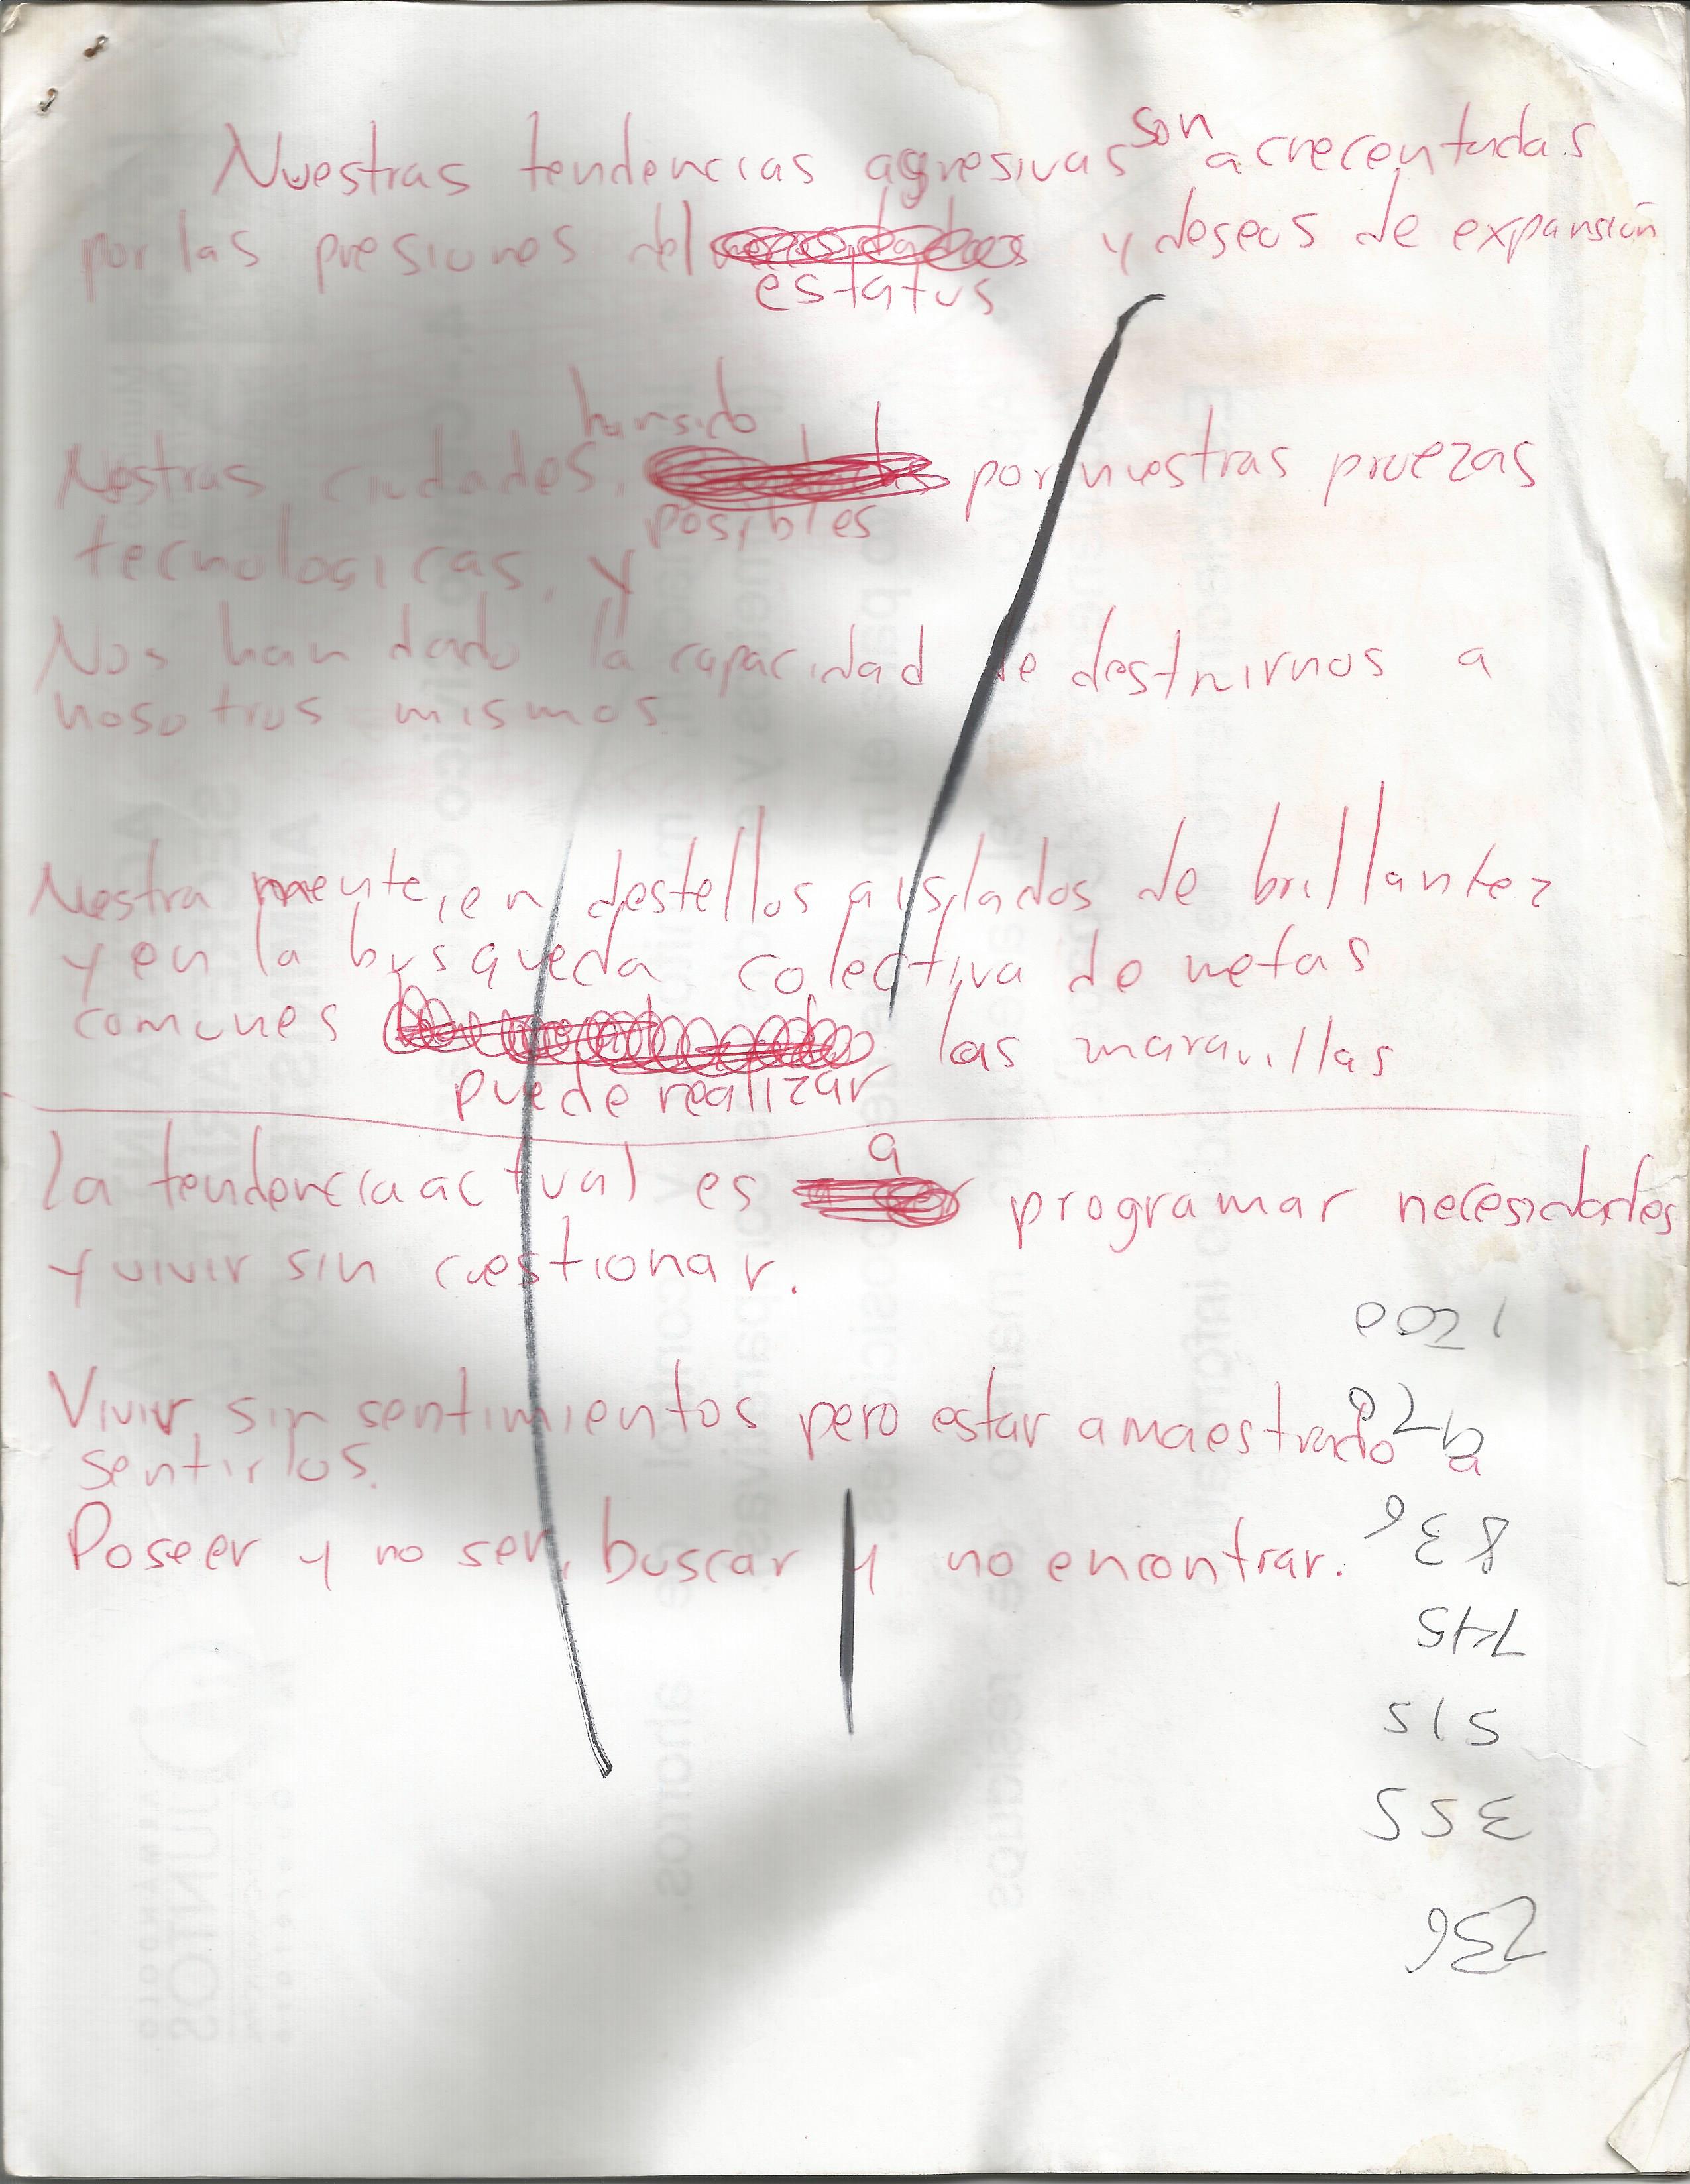 Nuestras tendencias agresivas son acrecentadas
por las presiones del estatus y deseos de expansión
Nestras ciudades, han sido posibles por nuestras proezas
tecnologicas, y
Nos han dado la capacidad de destruirnos a
nosotros mismos
Nestra mente, en destellos aislados de brillantez
y en la busqueda colectiva de metas
comunes puede realizar las maravillas
la tendencia actual es a programar necesidades
y vivir sin cuestionar.
Vivir sin sentimientos pero estar amaestrado a
sentirlos.
Poseer y no ser, buscar y no encontrar.
236
355
515
745
836